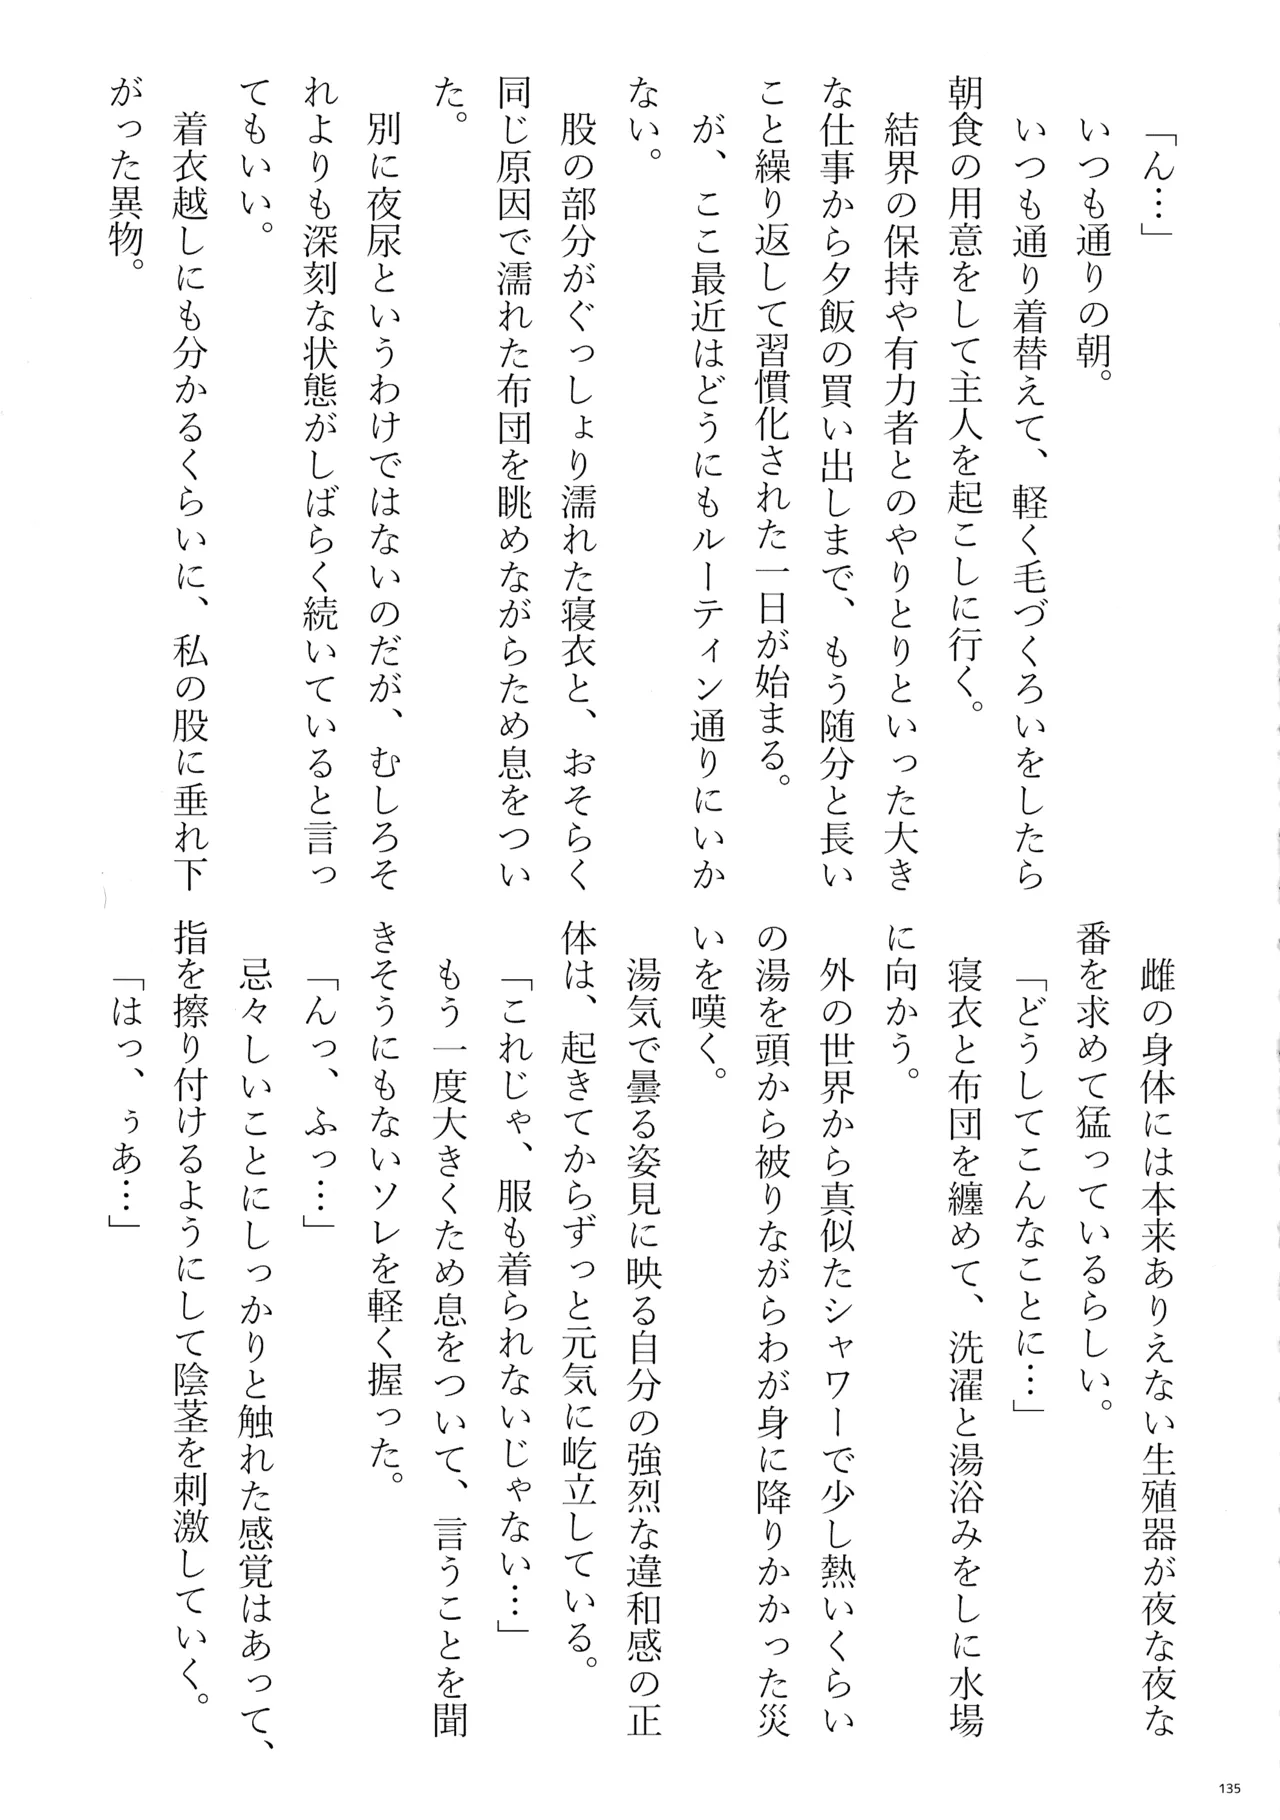 「ん…」
いつも通りの朝。
いつも通り着替えて、軽く毛づくろいをしたら
朝食の用意をして主人を起こしに行く。
結界の保持や有力者とのやりとりといった大き
な仕事から夕飯の買い出しまで、もう随分と長い
こと繰り返して習慣化された一日が始まる。
が、ここ最近はどうにもルーティン通りにいか
ない。
股の部分がぐっしょり濡れた寝衣と、おそらく
同じ原因で濡れた布団を眺めながらため息をつい
た。
別に夜尿というわけではないのだが、むしろそ
れよりも深刻な状態がしばらく続いていると言っ
てもいい。
着衣越しにも分かるくらいに、私の股に垂れ下
がった異物。
雌の身体には本来ありえない生殖器が夜な夜な
番を求めて猛っているらしい。
「どうしてこんなことに…」
寝衣と布団を纏めて、洗濯と湯浴みをしに水場
に向かう。
外の世界から真似たシャワーで少し熱いくらい
の湯を頭から被りながらわが身に降りかかった災
いを嘆く。
湯気で曇る姿見に映る自分の強烈な違和感の正
体は、起きてからずっと元気に屹立している。
「これじゃ、服も着られないじゃない…」
もう一度大きくため息をついて、言うことを聞
きそうにもないソレを軽く握った。
「んっ、ふっ…」
忌々しいことにしっかりと触れた感覚はあって、
指を擦り付けるようにして陰茎を刺激していく。
「はっ、ぅあ…」
135